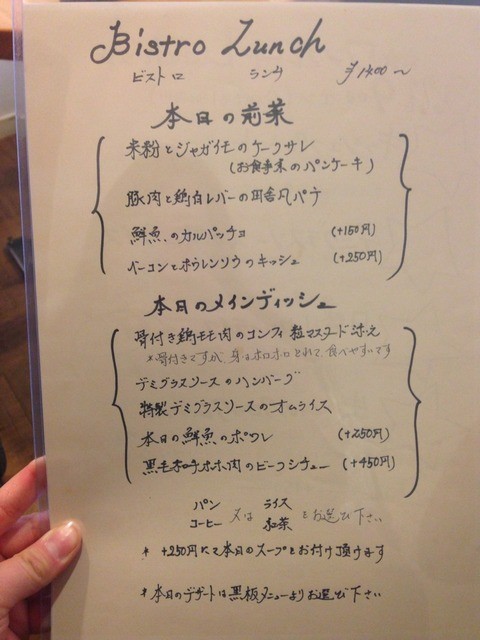 Bistro Lunch
ビストロ ランチ ¥1400〜
本日の前菜
米粉とジャガイモのケークサレ
(お食事系のパンケーキ)
豚肉と鶏白レバーの田舎風パテ
鮮魚のカルパッチョ (+150円)
ベーコンとホウレンソウのキッシュ (+250円)
本日のメインディッシュ
骨付き鶏モモ肉のコンフィ 粒マスタード添え
*骨付きですが、身はホロホロとれて、食べやすいです
デミグラスソースのハンバーグ
特製デミグラスソースのオムライス
本日の鮮魚のポワレ (+250円)
黒毛和牛ホホ肉のビーフシチュー (+450円)
パン ライス
又は とお選び下さい
コーヒー 紅茶
* +250円にて本日のスープとお付け頂けます
* 本日のデザートは黒板メニューよりお選び下さい